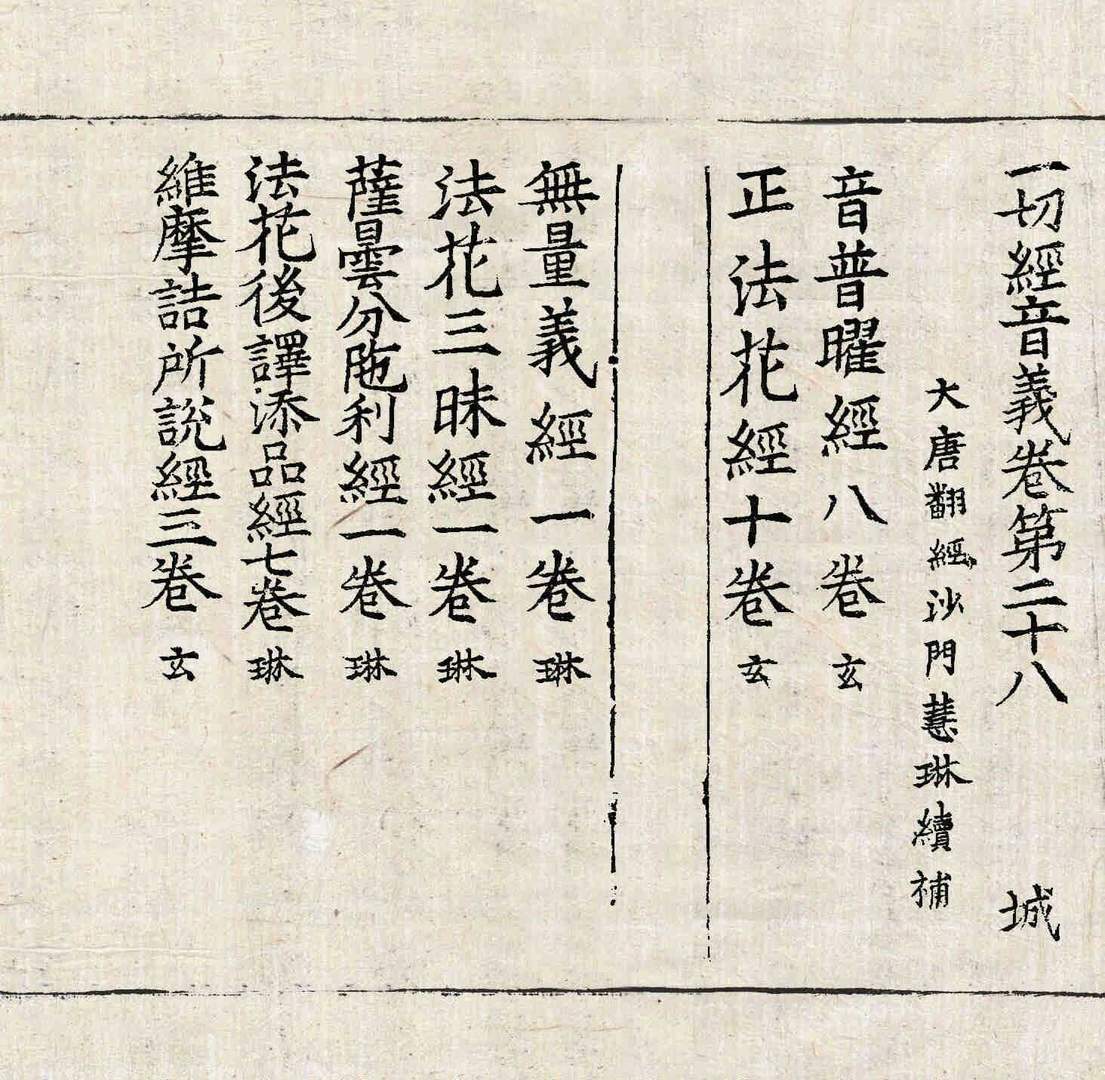 一切經音義卷第二十八 城
大唐翻經沙門慧琳續補
音普曜經八卷 玄
正法花經十卷 玄
無量義經一卷 琳
法花三昧經一卷 琳
薩曇分陁利經一卷 琳
法花後譯添品經七卷 琳
維摩詰所說經三卷 玄